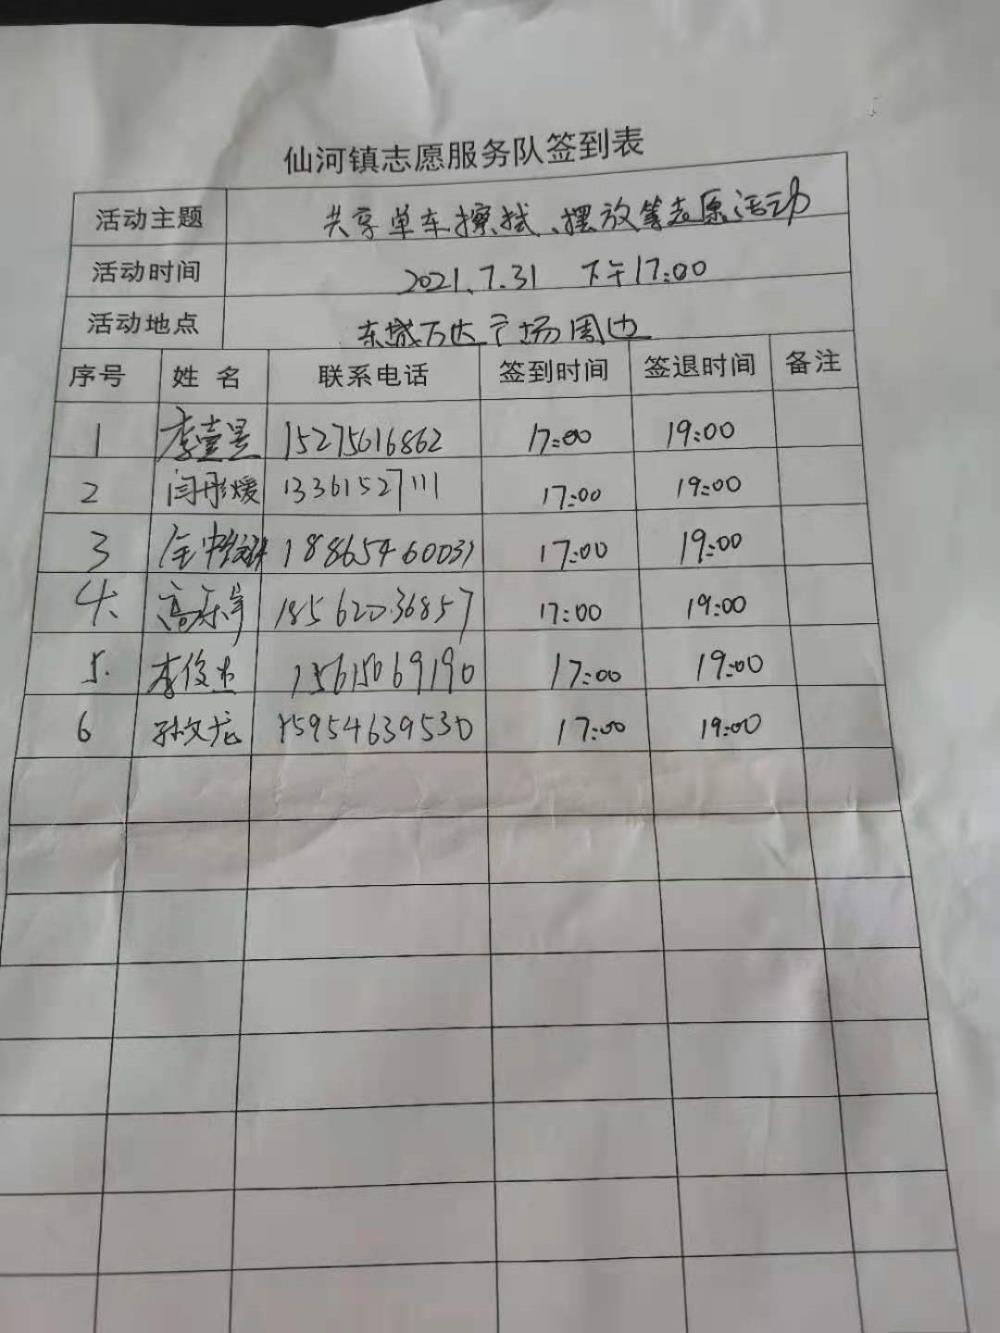 仙河镇志愿服务队签到表
活动主题 共享单车擦拭、摆放等志愿活动
活动时间 2021.7.31 下午17:00
活动地点 东城万达广场周边
序号 姓名 联系电话 签到时间 签退时间 备注
1 李壹昊 15275616862 17:00 19:00
2 闫彤媛 13361527111 17:00 19:00
3 18865460031 17:00 19:00
4. 高乐 18562036857 17:00 19:00
5. 李俊杰 15615069190 17:00 19:00
6 孙文龙 15954639530 17:00 19:00